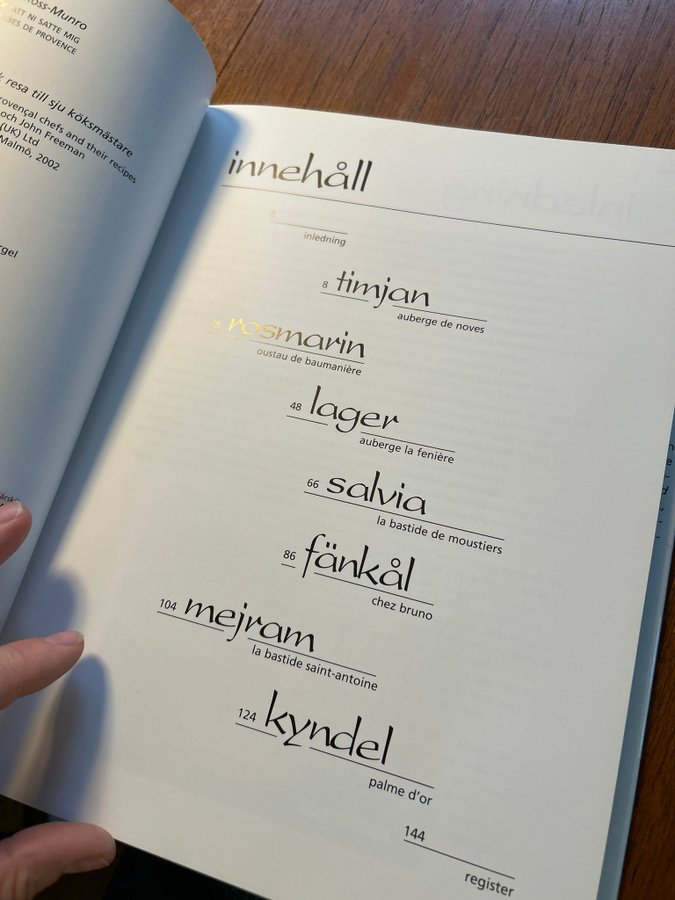 oss-Munro
ATT NI SATTE MIG
BES DE PROVENCE
resa till sju köksmästare
rovençal chefs and their recipes
och John Freeman
(UK) Ltd
Malmö, 2002
innehåll
inledning
8 timjan
auberge de noves
rosmarin
oustau de baumanière
48 lager
auberge la fenière
66 salvia
la bastide de moustiers
86 fänkål
chez bruno
104 mejram
la bastide saint-antoine
124 kyndel
palme d'or
144
register